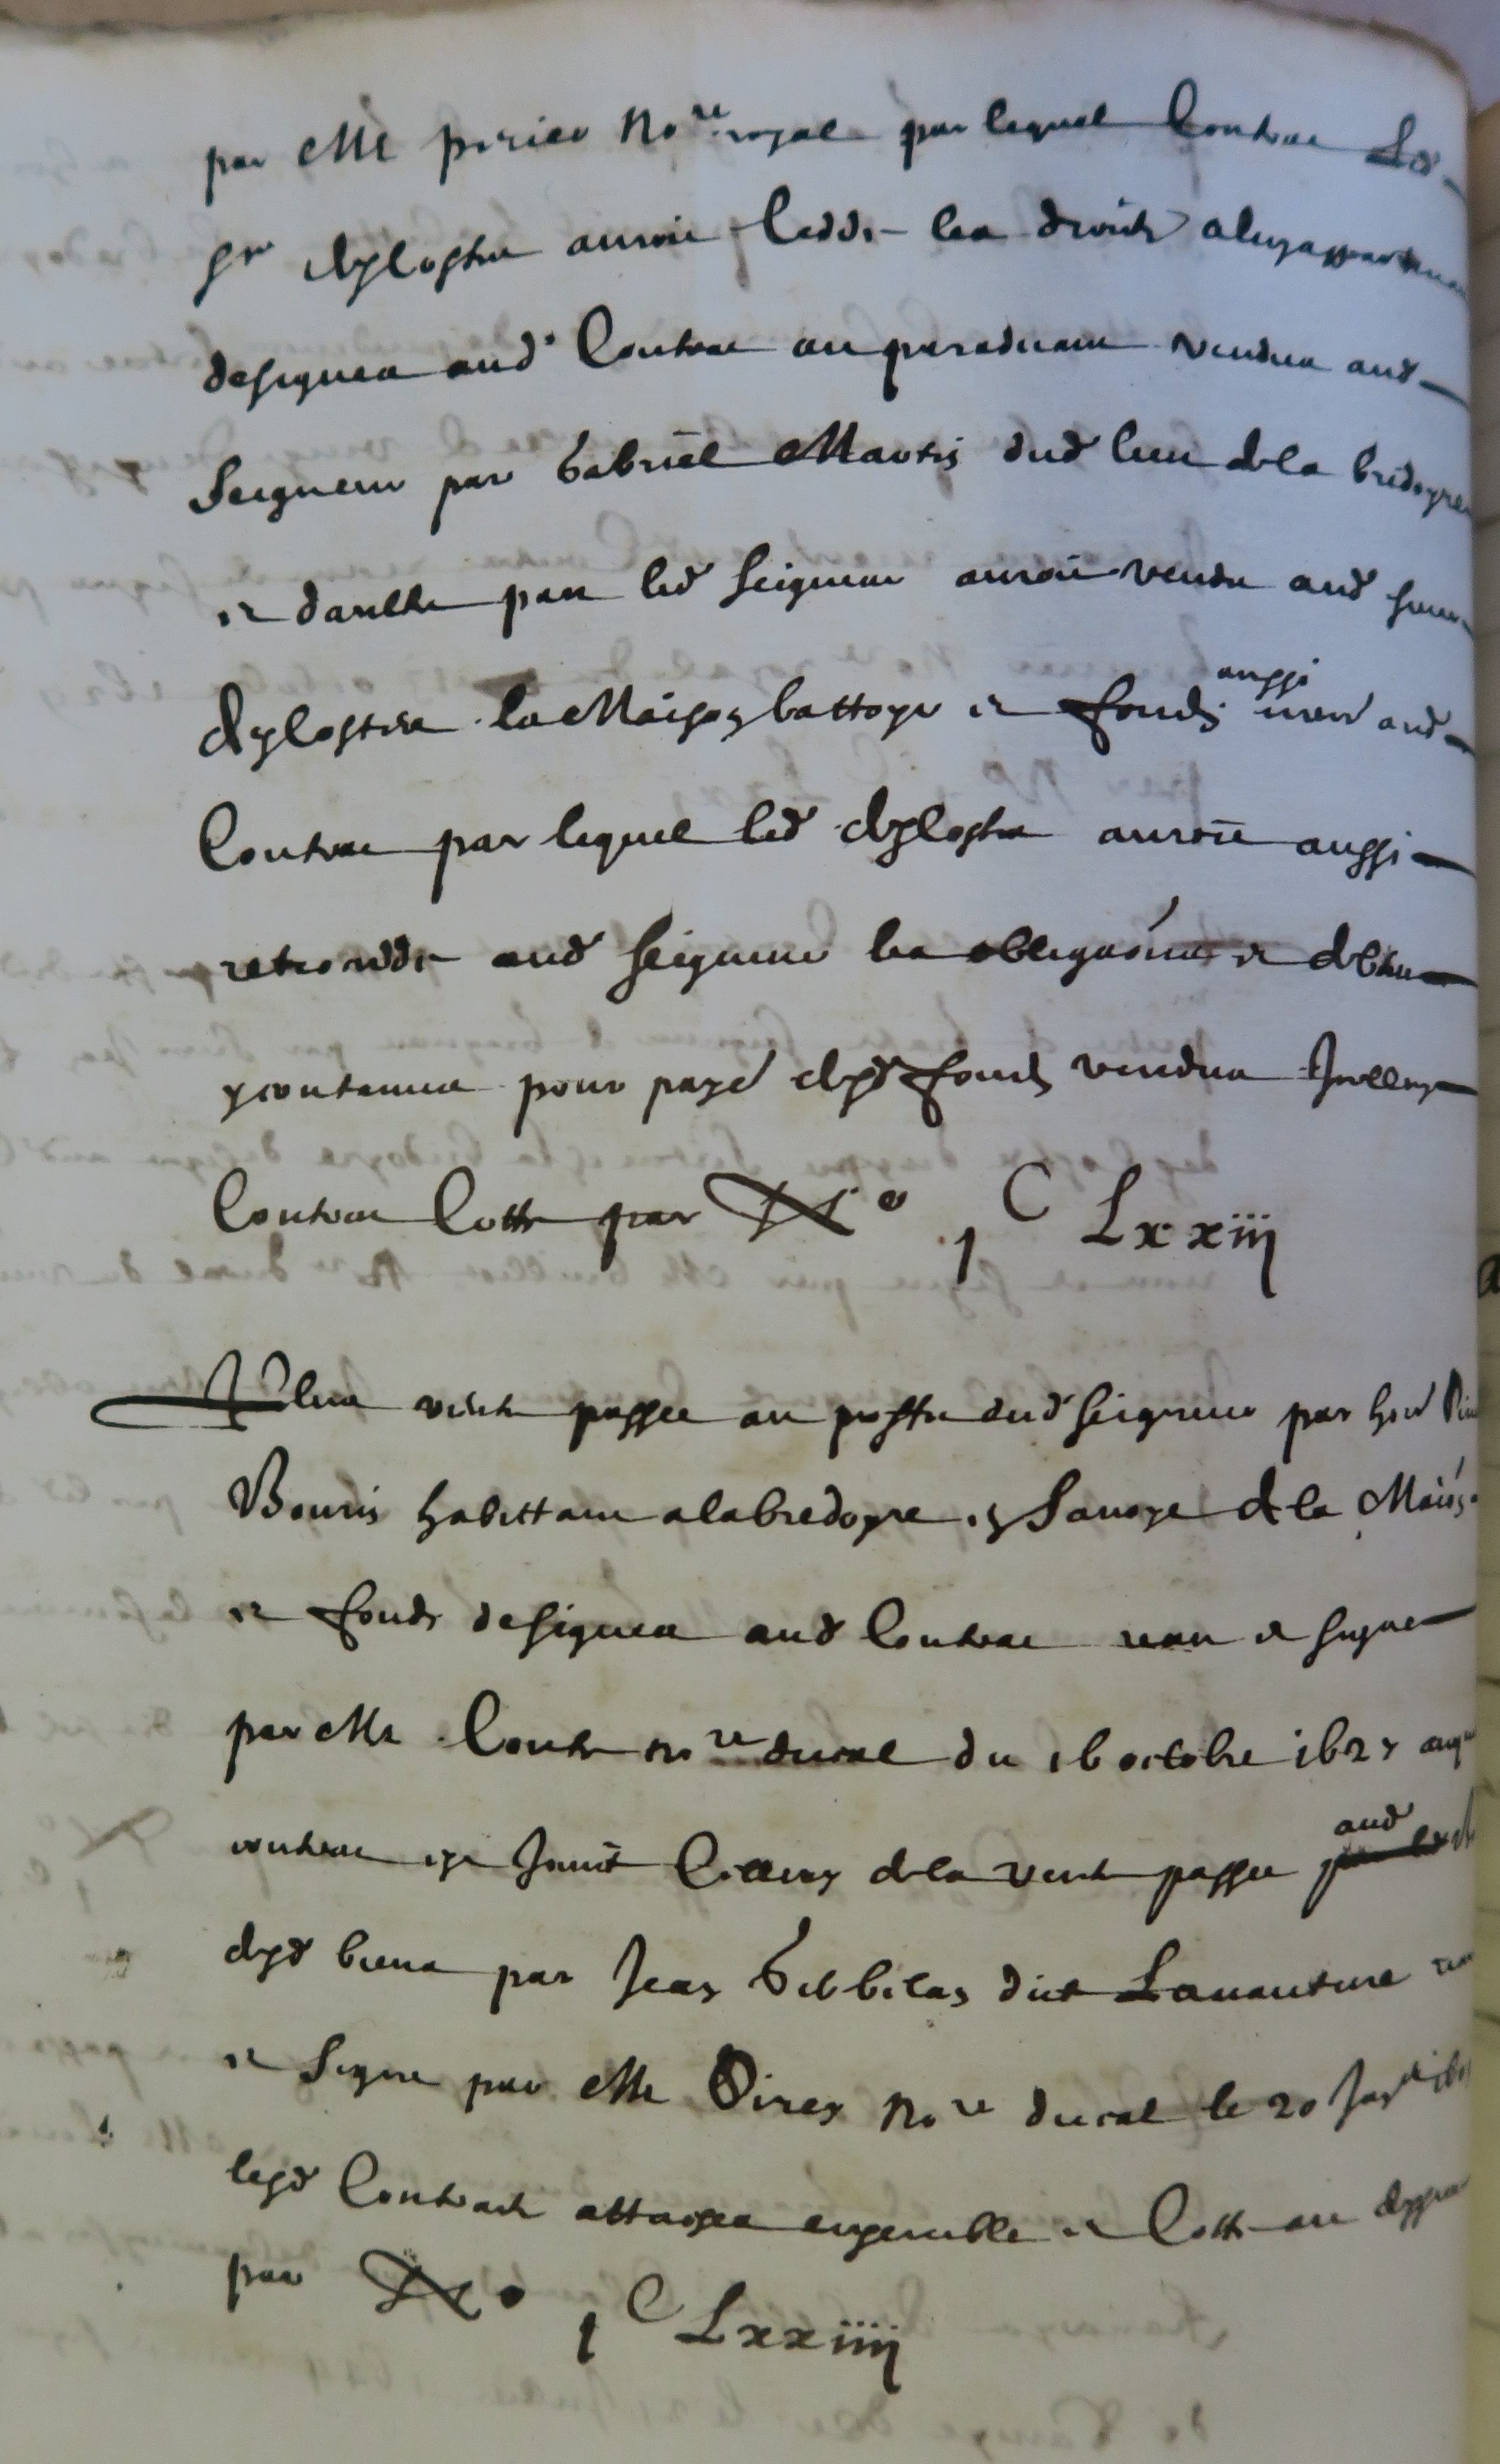 par Me perier no.re royal par lequel Contrac Led
Sr Deloste auroit Ceddé les droits a luy appartenans
designes aud Contrac auparadvant vendus aud
Seigneur par Gabriel Martin dud lieu de la bridoyre
et daultre part led Seigneur auroit vendu aud sieur
la Maison battoyr et fondz aussi aud
Contrac par lequel led auroit aussi
retroceddé aud Seigneur les obligaōns et debtes
y contenues pour payé desd fondz vendus Icelluy
Contrac Cotté par No 1 C Lxxiij
Plus vente passee au proffit dud Seigneur par
Bouvin habittant a la bredoyre en Savoye de la Maison
et fondz designes aud Contrac receu et signe
par Me Conte no.re ducal du 16 octobre 1627
contrac est Joinct Celluy de la vente passee aud
desd biens par Jean dict Lavanture
et Signe par Me no.re ducal le 20
lesd Contracts attaches ensemble et Cotté au
par No 1 C Lxxiiij